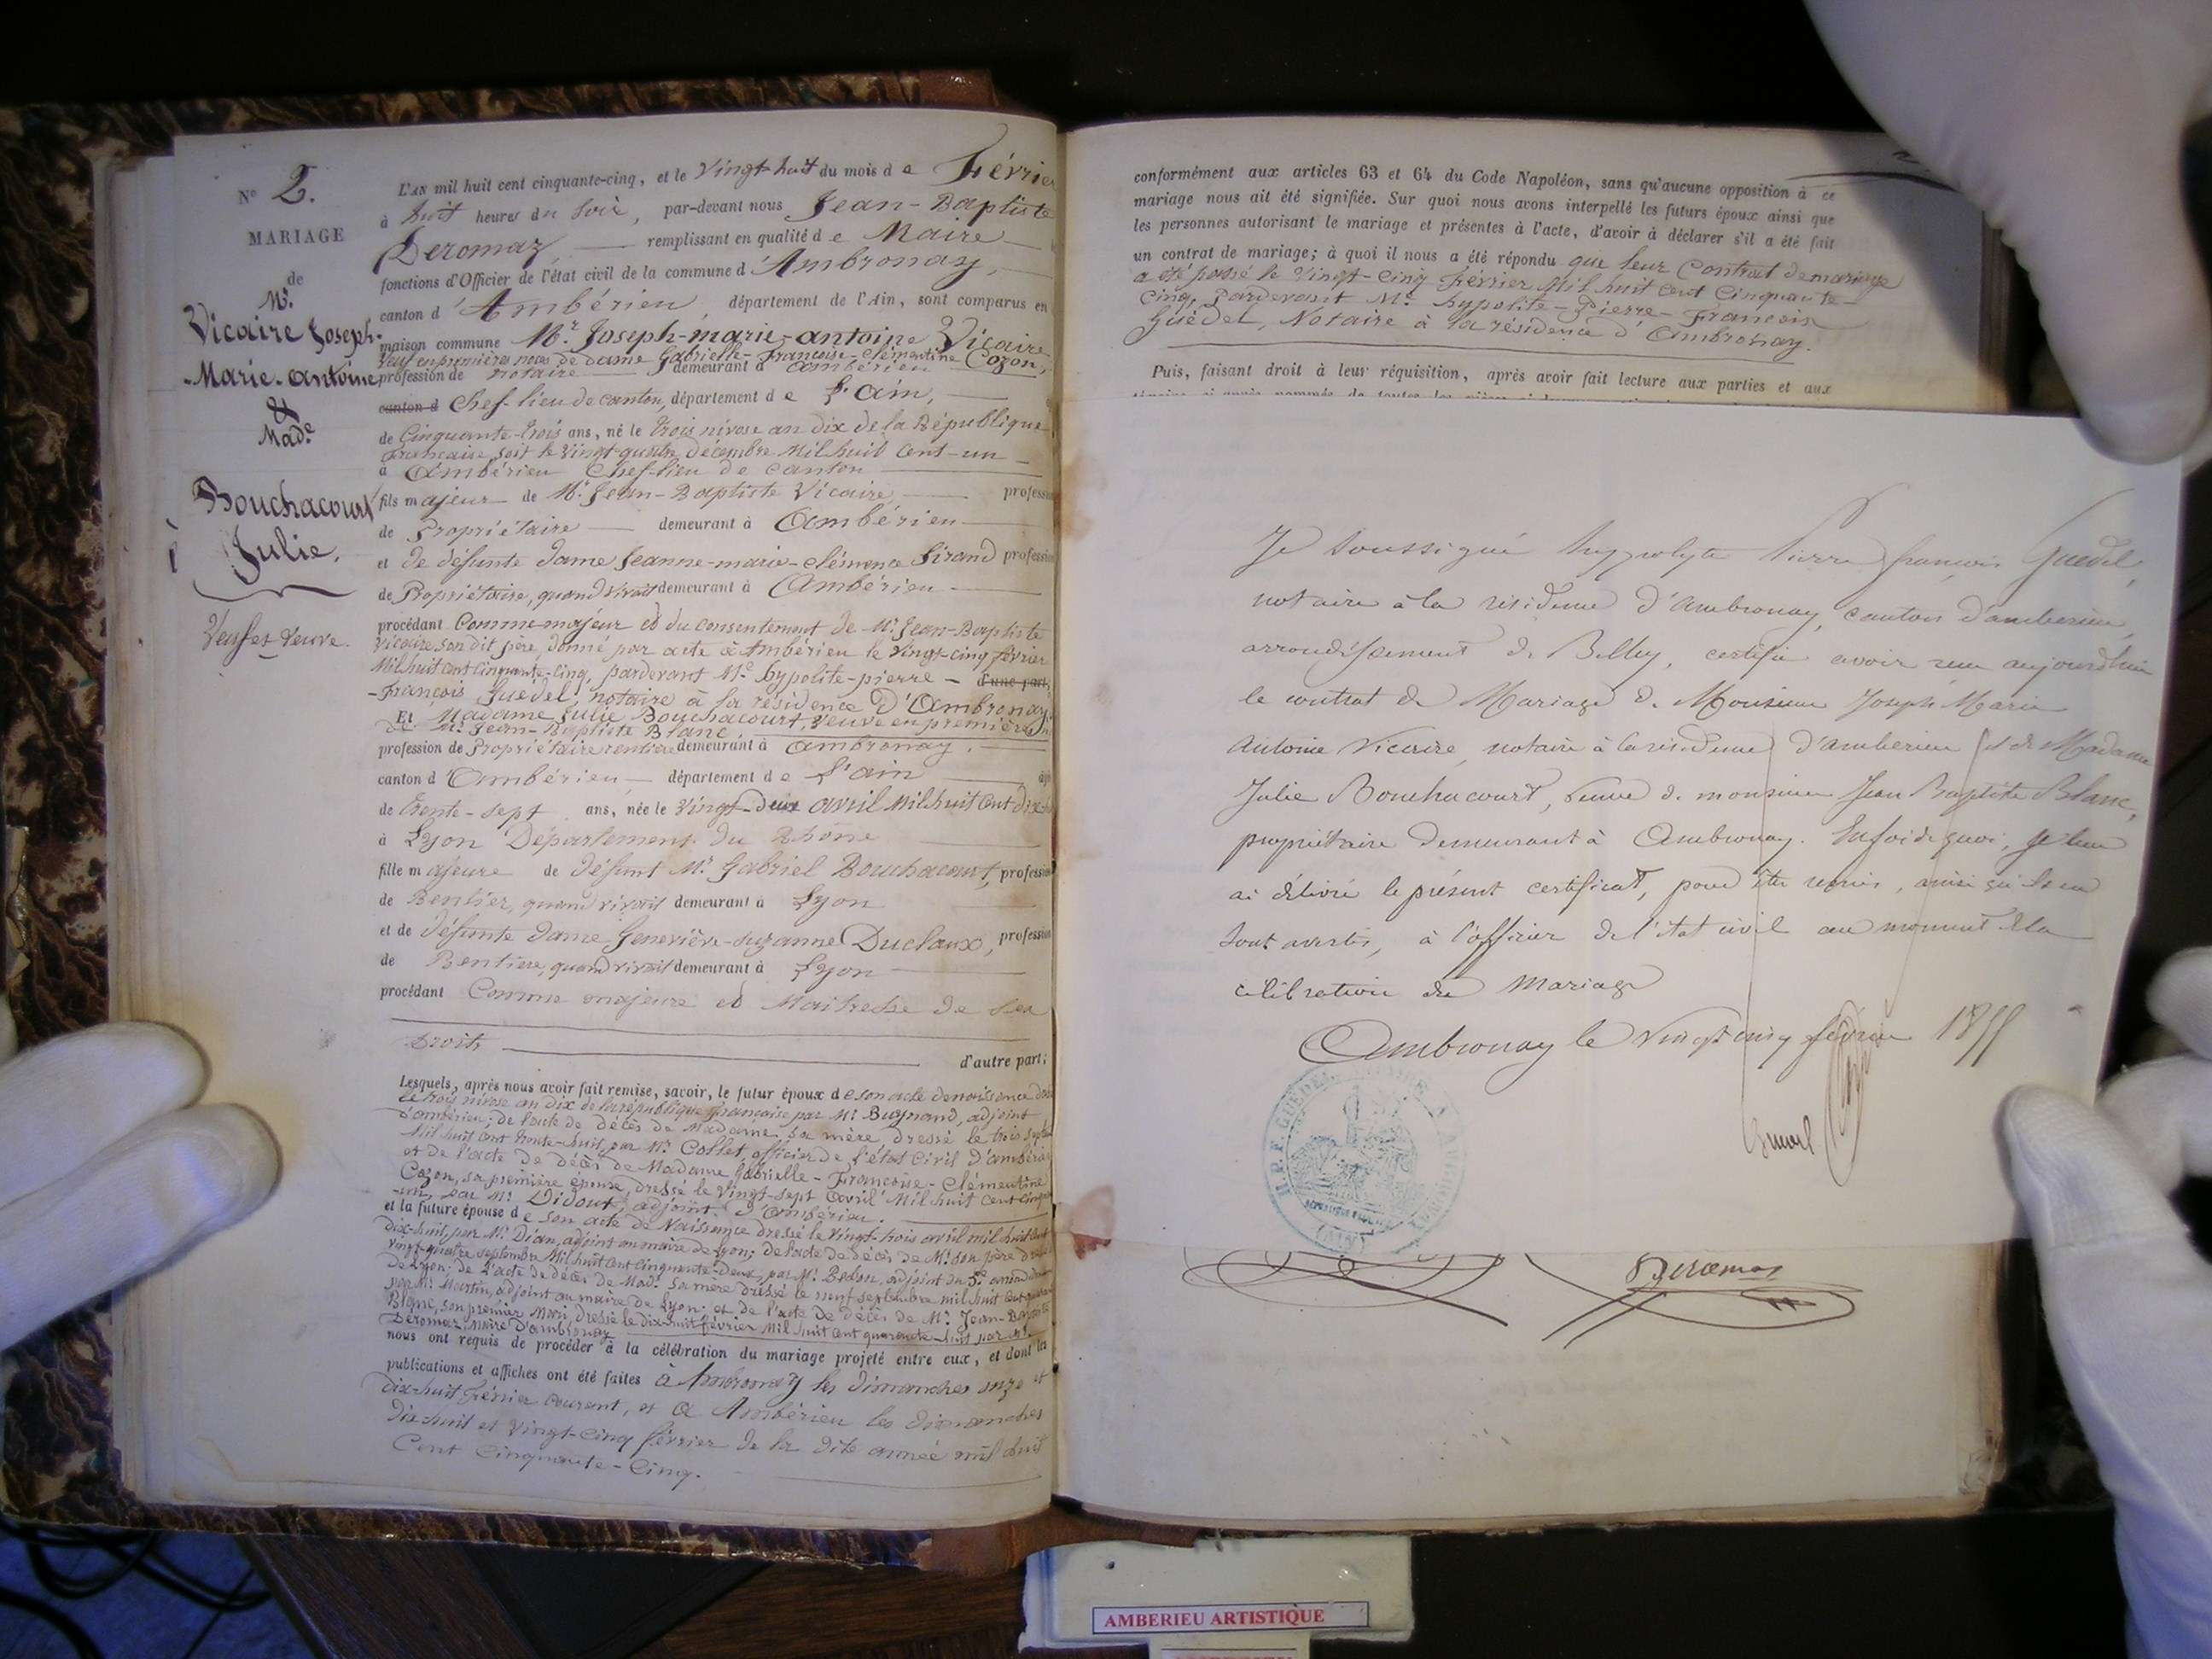 N° 2.
MARIAGE
de
Mr.
Vicaire Joseph-
-Marie-Antoine
&
Made
Bouchacourt
Julie,
Veuf et Veuve.
L'AN mil huit cent cinquante-cinq, et le Vingt-huit du mois de Février
à huit heures du Soir, par-devant nous Jean-Baptiste
Deromaz, remplissant en qualité de Maire
fonctions d'Officier de l'état civil de la commune d'Ambronay,
canton d'Ambérieu, département de l'Ain, sont comparus en
maison commune Mr. Joseph-marie-antoine Vicaire
Veuf en premières noces de dame Gabrielle-Françoise-Clémentine Cozon,
profession de notaire demeurant à ambérieu
canton d Chef-lieu de canton, département de L'ain,
de Cinquante-trois ans, né le trois nivose an dix de la République
Française, soit le Vingt-quatre décembre Mil huit Cent-un
à Ambérieu Chef-lieu de canton
fils majeur de Mr. Jean-Baptiste Vicaire, profession
de Propriétaire demeurant à Ambérieu
et de défunte dame Jeanne-marie-clémence Sirand profession
de Propriétaire, quand vivait demeurant à Ambérieu
procédant Comme majeur et du consentement de Mr. Jean-Baptiste
Vicaire son dit père, donné par acte à Ambérieu le Vingt-cinq février
Mil huit cent cinquante-cinq, pardevant Me. hypolite-pierre- d'une part,
-François Guedel, notaire à la résidence D'Ambronay
Et Madame Julie Bouchacourt, Veuve en premières
de Mr. Jean-Baptiste Blanc,
profession de Propriétaire rentière demeurant à ambronay,
canton d'Ambérieu département de L'ain
de trente-sept ans, née le Vingt-deux avril Mil huit Cent dix
à Lyon Département du Rhône
fille majeure de défunt Mr. Gabriel Bouchacourt, profession
de Rentier, quand vivait demeurant à Lyon
et de défunte dame Geneviève-suzanne Duclaux, profession
de Rentière, quand vivait demeurant à Lyon
procédant Comme majeure et Maitresse de ses
Droits
d'autre part;
Lesquels, après nous avoir fait remise, savoir, le futur époux de son acte de naissance
le trois nivose an dix de la république française par Mr. Bugnand, adjoint
d'ambérieu; de l'acte de décès de Madame sa mère dressé le trois
Mil huit cent trente-huit, par Mr. Collet, officier de l'état civil d'ambérieu
et de l'acte de décès de Madame Gabrielle-Françoise-Clémentine
Cozon, sa première épouse, dressé le Vingt-sept Avril Mil huit cent
-un, par Mr. Didout, adjoint d'Ambérieu.
et la future épouse de son acte de Naissance dressé le Vingt-trois avril mil huit cent
dix-huit par Mr. Dian, adjoint au maire de Lyon; de l'acte de décès de Mr. son père
Vingt-quatre septembre Mil huit cent cinquante-deux, par Mr. adjoint du 5e.
de Lyon; de l'acte de décès de Made. sa mère dressé le neuf septembre mil huit cent
par Mr. Martin, adjoint au maire de Lyon; et de l'acte de décès de Mr. Jean-Baptiste
Blanc, son premier Mari, dressé le dix-huit février Mil huit cent quarante-huit par Mr.
Deromaz Maire d'ambronay
nous ont requis de procéder à la célébration du mariage projeté entre eux, et dont les
publications et affiches ont été faites à Ambronay les Dimanches onze et
Dix-huit Février Courant, et à Ambérieu les dimanches
Dix-huit et Vingt-cinq février de la dite année mil huit
Cent Cinquante-Cinq.
conformément aux articles 63 et 64 du Code Napoléon, sans qu'aucune opposition à ce
mariage nous ait été signifiée. Sur quoi nous avons interpellé les futurs époux ainsi que
les personnes autorisant le mariage et présentes à l'acte, d'avoir à déclarer s'il a été fait
un contrat de mariage; à quoi il nous a été répondu que leur Contrat de mariage
a été passé le Vingt-Cinq Février Mil huit Cent Cinquante-
Cinq, Pardevant Me. hypolite-Pierre-François
Guédel, Notaire à la résidence d'Ambronay.
Puis, faisant droit à leur réquisition, après avoir fait lecture aux parties et aux
Je soussigné hyppolyte Pierre françois Guedel,
notaire à la résidence d'Ambronay, canton d'amberieu,
arrondissement de Belley, certifie avoir reçu aujourd'hui
le contrat de Mariage de Monsieur Joseph Marie
Antoine Vicaire, notaire à la résidence d'amberieu et de Madame
Julie Bouchacourt, veuve de monsieur Jean Baptiste Blanc,
propriétaire demeurant à Ambronay. En foi de quoi, je leur
ai délivré le présent certificat, pour être remis, ainsi qu'ils en
sont avertis, à l'officier de l'état civil au moment de la
célébration du Mariage
Ambronay le vingt cinq février 1855
Guedel
H. P. F. GUEDEL
(AIN)
Deromaz
AMBERIEU ARTISTIQUE